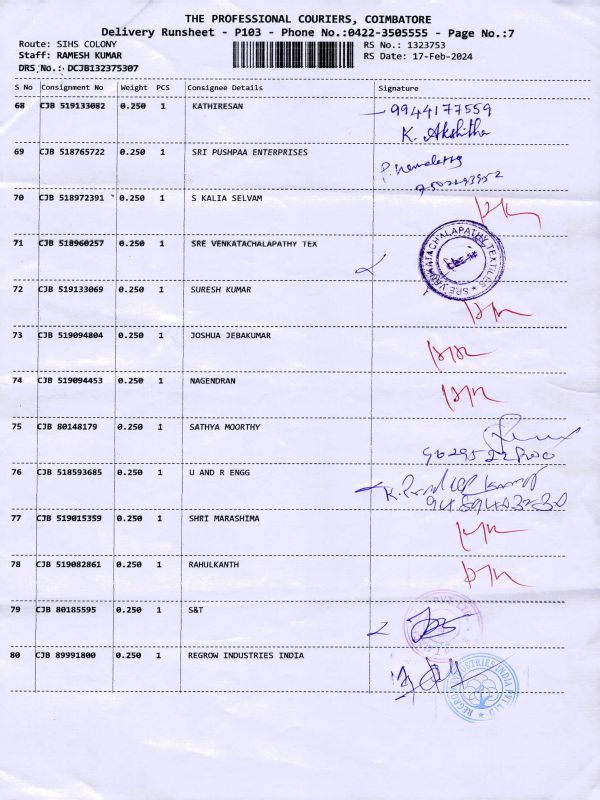 THE PROFESSIONAL COURIERS, COIMBATORE
Delivery Runsheet - P103 - Phone No.:0422-3505555 - Page No.:7
Route: SIHS COLONY RS No.: 1323753
Staff: RAMESH KUMAR RS Date: 17-Feb-2024
DRS No.: DCJB132375307
S No Consignment No Weight PCS Consignee Details Signature
68 CJB 519133082 0.250 1 KATHIRESAN 9944177559
K. Akshitha
69 CJB 518765722 0.250 1 SRI PUSHPAA ENTERPRISES
70 CJB 518972391 0.250 1 S KALIA SELVAM
71 CJB 518960257 0.250 1 SRE VENKATACHALAPATHY TEX
72 CJB 519133069 0.250 1 SURESH KUMAR
73 CJB 519094804 0.250 1 JOSHUA JEBAKUMAR
74 CJB 519094453 0.250 1 NAGENDRAN
75 CJB 80148179 0.250 1 SATHYA MOORTHY
76 CJB 518593685 0.250 1 U AND R ENGG K. Pradeep Kumar
77 CJB 519015359 0.250 1 SHRI MARASHIMA
78 CJB 519082861 0.250 1 RAHULKANTH
79 CJB 80185595 0.250 1 S&T
80 CJB 89991800 0.250 1 REGROW INDUSTRIES INDIA
REGROW INDUSTRIES INDIA PVT LTD